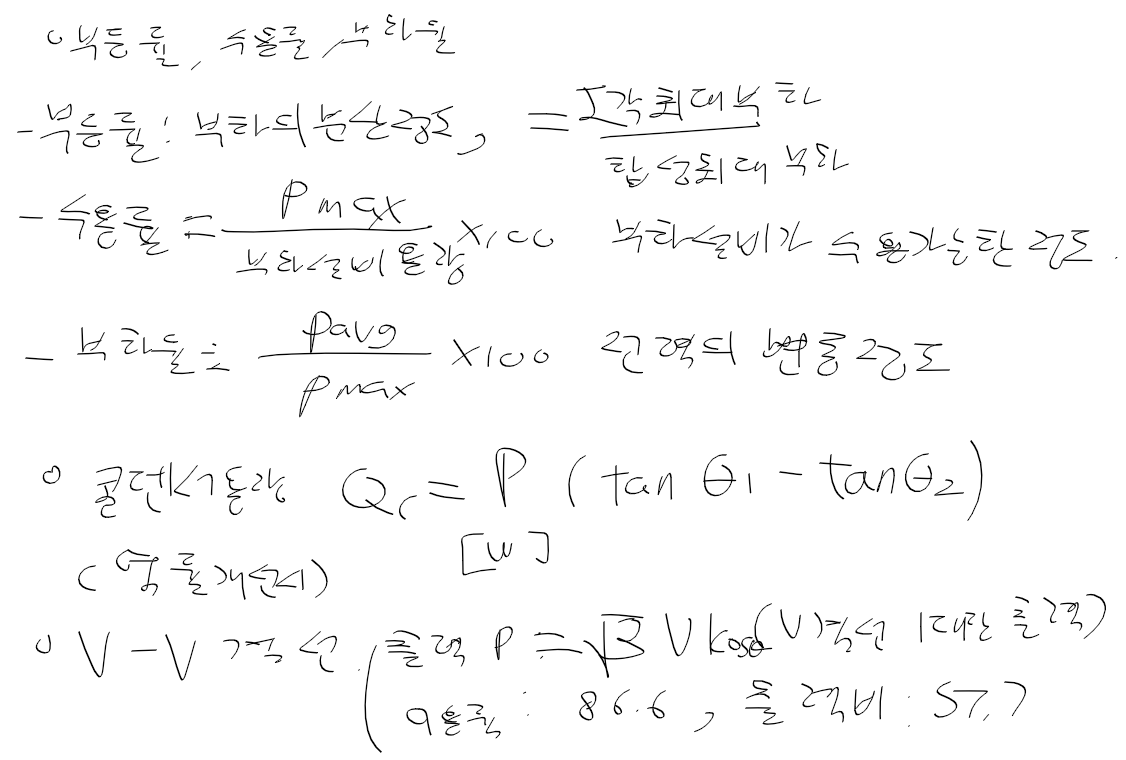 ○ 부등률, 수용률, 부하율
- 부등률 : 부하의 분산정도, = Σ각 최대부하 / 합성최대부하
- 수용률 = Pmax / 부하설비용량 ×100 부하설비가 수용가능한 정도.
- 부하율 = Pavg / Pmax ×100 전력의 변동정도
○ 콘덴서용량 Qc = P (tan θ1 - tan θ2)
(역률개선시) [W]
○ V-V 결선 ( 출력 P = √3 VIcosθ (V결선 1대만 출력)
이용률 : 86.6, 출력비 : 57.7